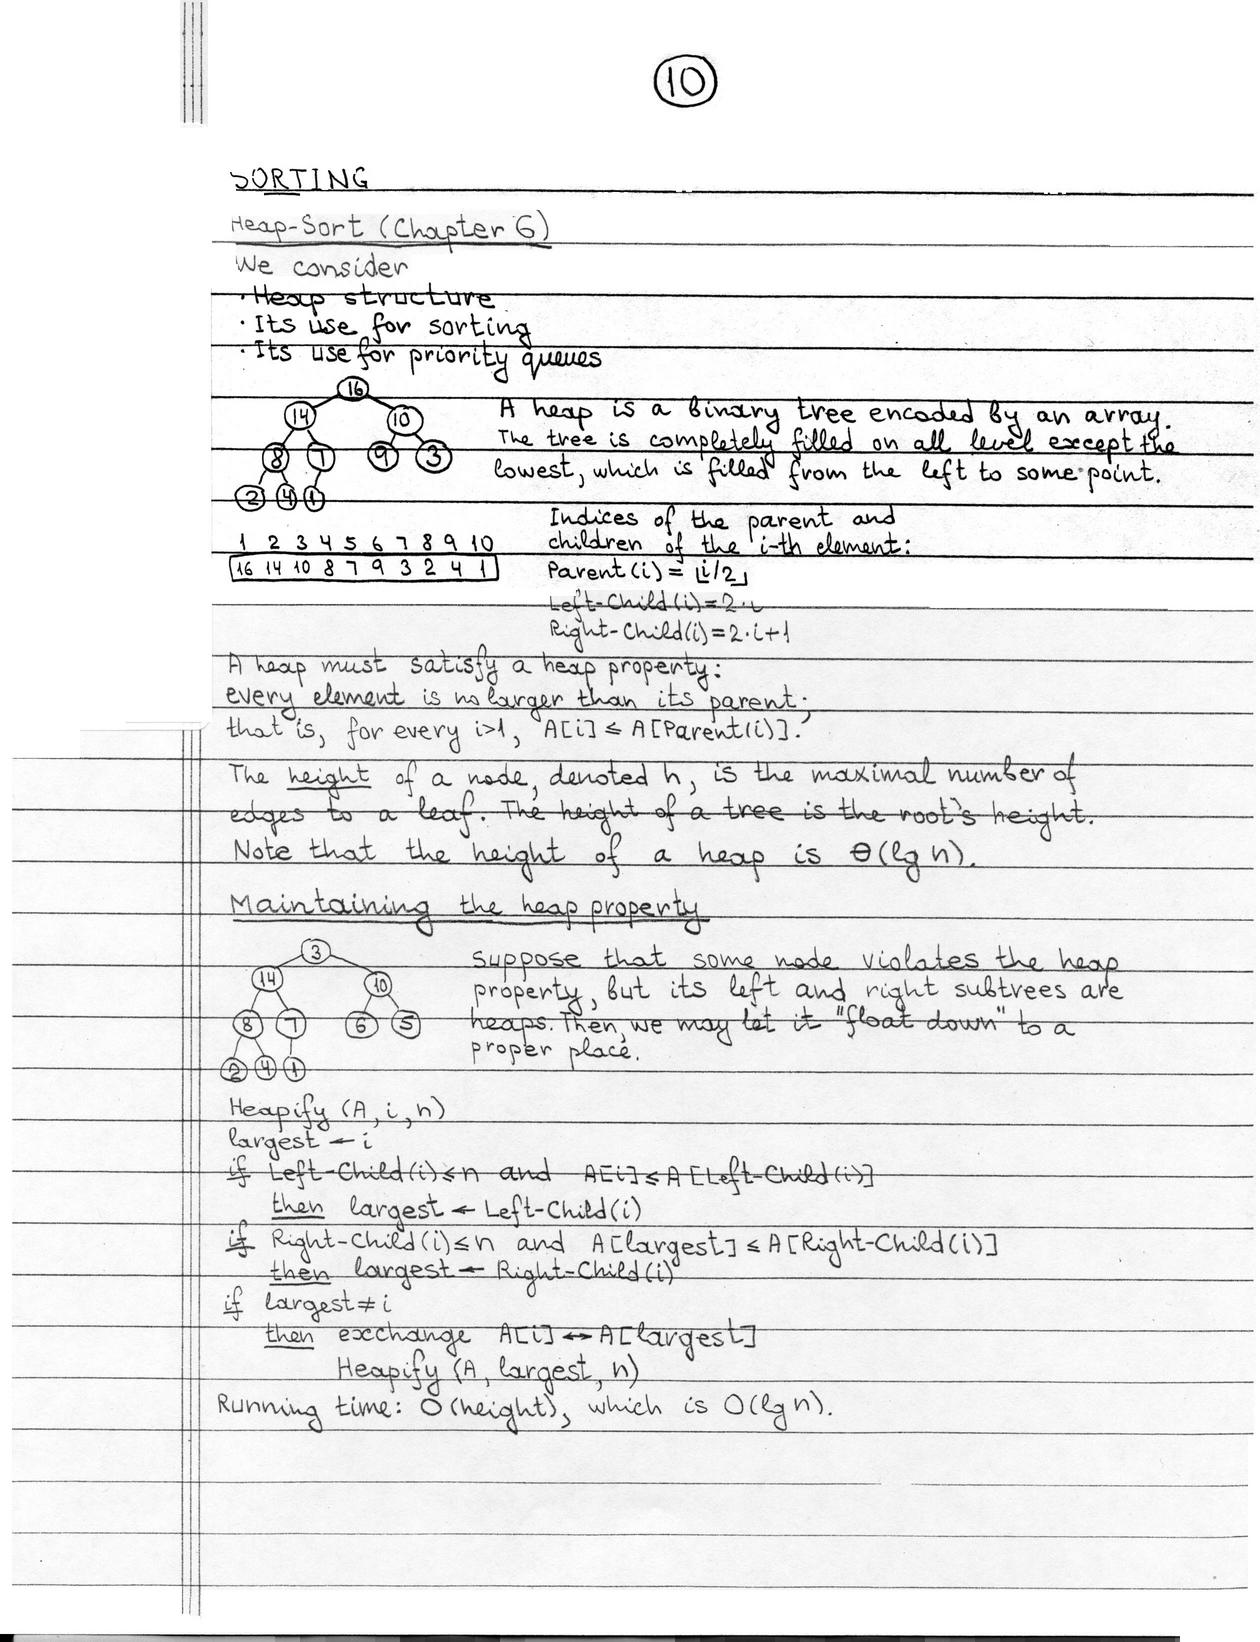 10
SORTING
Heap-Sort (Chapter 6)
We consider
· Heap structure
· Its use for sorting
· Its use for priority queues
16
14 10
8 7 9 3
2 4 1
A heap is a binary tree encoded by an array.
The tree is completely filled on all level except the
lowest, which is filled from the left to some point.
1 2 3 4 5 6 7 8 9 10
16 14 10 8 7 9 3 2 4 1
Indices of the parent and
children of the i-th element:
Parent(i) = ⌊i/2⌋
Left-Child(i)=2·i
Right-Child(i)=2·i+1
A heap must satisfy a heap property:
every element is no larger than its parent;
that is, for every i>1, A[i] ≤ A[Parent(i)].
The height of a node, denoted h, is the maximal number of
edges to a leaf. The height of a tree is the root's height.
Note that the height of a heap is Θ(lg n).
Maintaining the heap property
3
14 10
8 7 6 5
2 4 1
Suppose that some node violates the heap
property, but its left and right subtrees are
heaps. Then, we may let it "float down" to a
proper place.
Heapify (A, i, n)
largest ← i
if Left-Child(i)≤n and A[i]≤A[Left-Child(i)]
then largest ← Left-Child(i)
if Right-Child(i)≤n and A[largest] ≤ A[Right-Child(i)]
then largest ← Right-Child(i)
if largest≠i
then exchange A[i] ↔ A[largest]
Heapify (A, largest, n)
Running time: O(height), which is O(lg n).